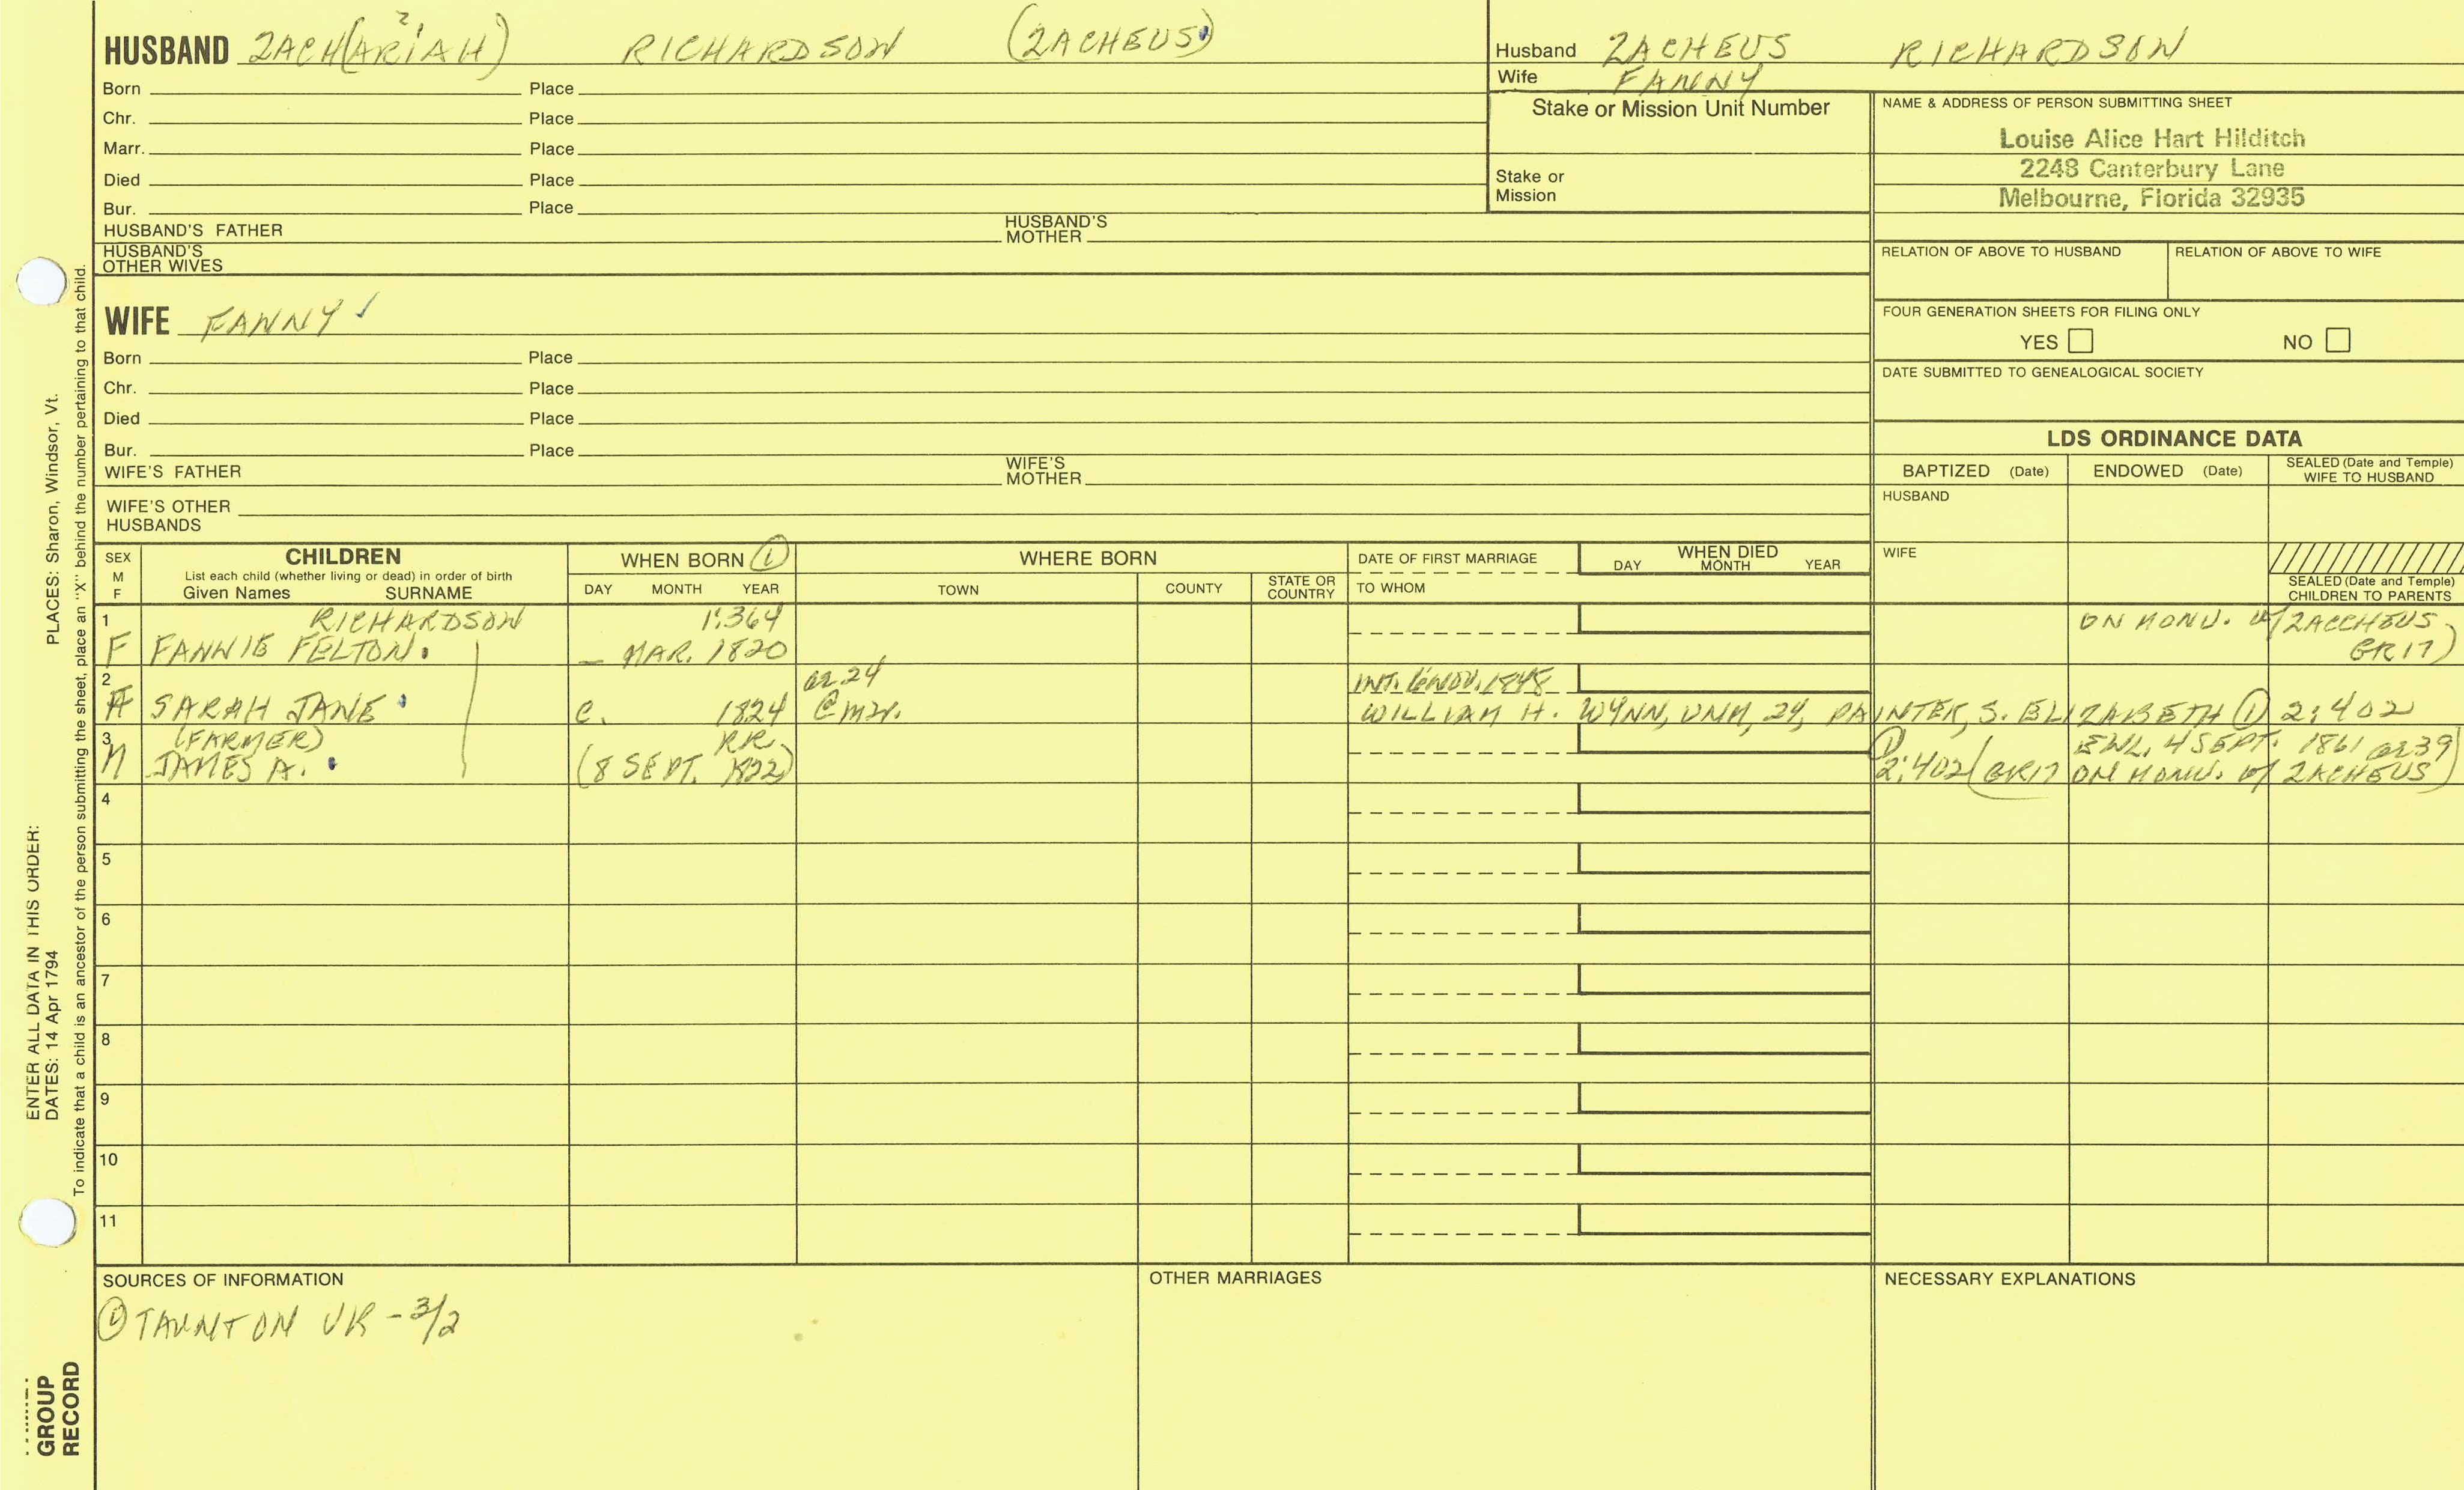 HUSBAND ZACH(ARIAH) ? RICHARDSON (ZACHEUS)
Born Place
Chr. Place
Marr. Place
Died Place
Bur. Place
HUSBAND'S FATHER HUSBAND'S MOTHER
HUSBAND'S OTHER WIVES
WIFE FANNY
Born Place
Chr. Place
Died Place
Bur. Place
WIFE'S FATHER WIFE'S MOTHER
WIFE'S OTHER HUSBANDS
Husband ZACHEUS RICHARDSON
Wife FANNY
Stake or Mission Unit Number
Stake or Mission
NAME & ADDRESS OF PERSON SUBMITTING SHEET
Louise Alice Hart Hilditch
2248 Canterbury Lane
Melbourne, Florida 32935
RELATION OF ABOVE TO HUSBAND RELATION OF ABOVE TO WIFE
FOUR GENERATION SHEETS FOR FILING ONLY
YES NO
DATE SUBMITTED TO GENEALOGICAL SOCIETY
LDS ORDINANCE DATA
BAPTIZED (Date) ENDOWED (Date) SEALED (Date and Temple) WIFE TO HUSBAND
HUSBAND
WIFE
SEALED (Date and Temple) CHILDREN TO PARENTS
SEX M F
CHILDREN
List each child (whether living or dead) in order of birth
Given Names SURNAME
WHEN BORN ①
DAY MONTH YEAR
WHERE BORN
TOWN COUNTY STATE OR COUNTRY
DATE OF FIRST MARRIAGE
TO WHOM
WHEN DIED
DAY MONTH YEAR
1 RICHARDSON 1:364 ON MONU. W/ZACCHEUS
F FANNIE FELTON. _ MAR. 1820 GR17)
2 ae 24 INT. 16 NOV. 1848
F SARAH JANE c. 1824 @ mr. WILLIAM H. WYNN, UNM, 24, PAINTER, S. ELIZABETH ① 2:402
3 (FARMER) RR ① ENL. 4 SEPT. 1861 ae 39
M JAMES A. (8 SEPT. 1822) 2:402 (GR17 ON MONU. W/ ZACHEUS)
4
5
6
7
8
9
10
11
SOURCES OF INFORMATION
① TAUNTON VR - 3/2
OTHER MARRIAGES
NECESSARY EXPLANATIONS
ENTER ALL DATA IN THIS ORDER:
DATES: 14 Apr 1794 PLACES: Sharon, Windsor, Vt.
To indicate that a child is an ancestor of the person submitting the sheet, place an "X" behind the number pertaining to that child.
GROUP
RECORD